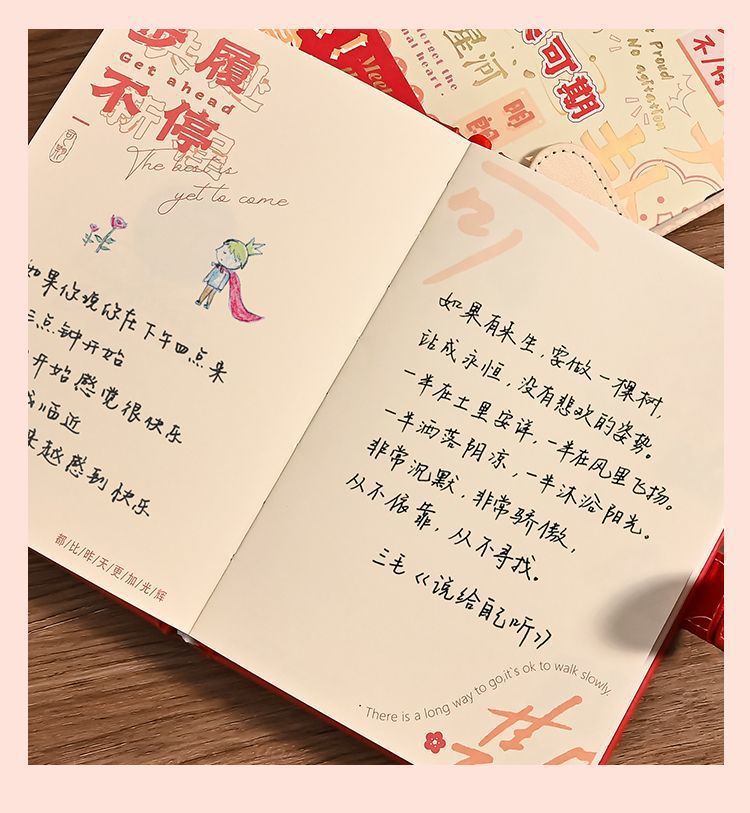 步履
Get ahead
不停
The best is
yet to come
如果你说你在下午四点来
三点钟开始
开始感觉很快乐
临近
越感到快乐
都/比/昨/天/更/加/光/辉
如果有来生，要做一棵树，
站成永恒，没有悲欢的姿势。
一半在土里安详，一半在风里飞扬。
一半洒落阴凉，一半沐浴阳光。
非常沉默，非常骄傲，
从不依靠，从不寻找。
三毛《说给自己听》
There is a long way to go,it's ok to walk slowly.
星河
可期
明
朗
Proud
No agitation